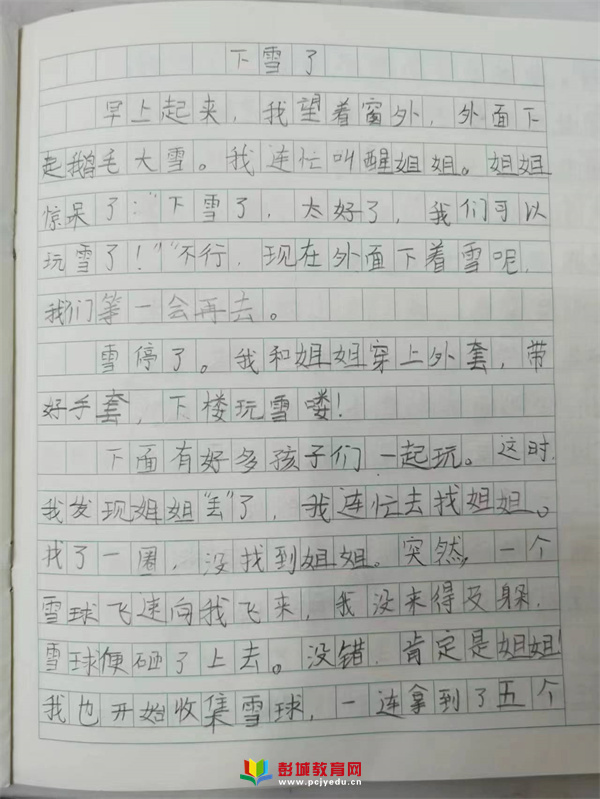 下雪了
早上起来，我望着窗外，外面下
起鹅毛大雪。我连忙叫醒姐姐。姐姐
惊呆了：“下雪了，太好了，我们可以
玩雪了！”“不行，现在外面下着雪呢，
我们等一会再去。
雪停了。我和姐姐穿上外套，带
好手套，下楼玩雪喽！
下面有好多孩子们一起玩。这时，
我发现姐姐“丢”了，我连忙去找姐姐。
找了一圈，没找到姐姐。突然，一个
雪球飞速向我飞来，我没来得及躲，
雪球便砸了上去。没错，肯定是姐姐！
我也开始收集雪球，一连拿到了五个
彭城教育网
www.pcjyedu.cn